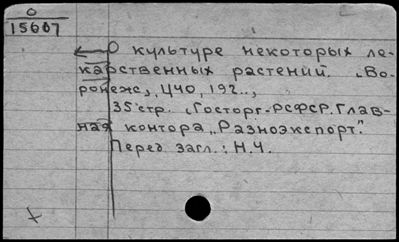 О
15607
О культуре некоторых ле-
карственных растений. „Во-
ронеж, ЦЧО, 192..,
35 стр. „Госторг-РСФСР. Глав-
ная контора „Разноэкспорт".
Перед загл.: Н.Ч.